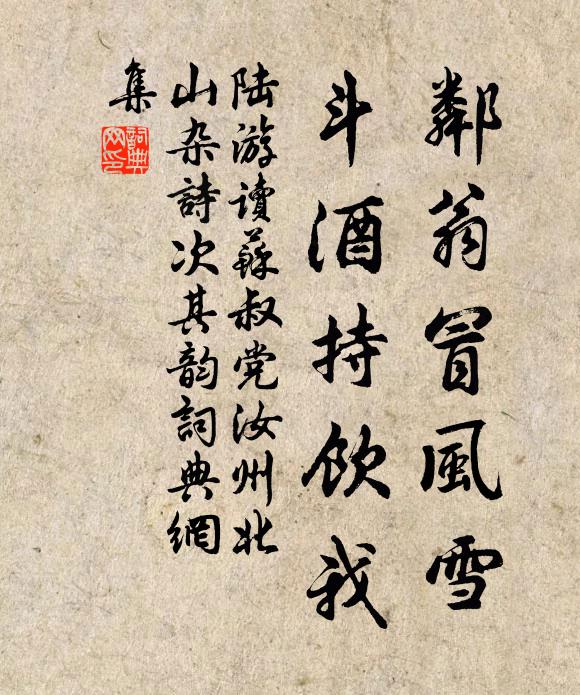 鄰翁冒風雪
斗酒持飲我
陸游讀蘇叔党汝州北
山杂詩次其韵詞典網
集
詞典網印